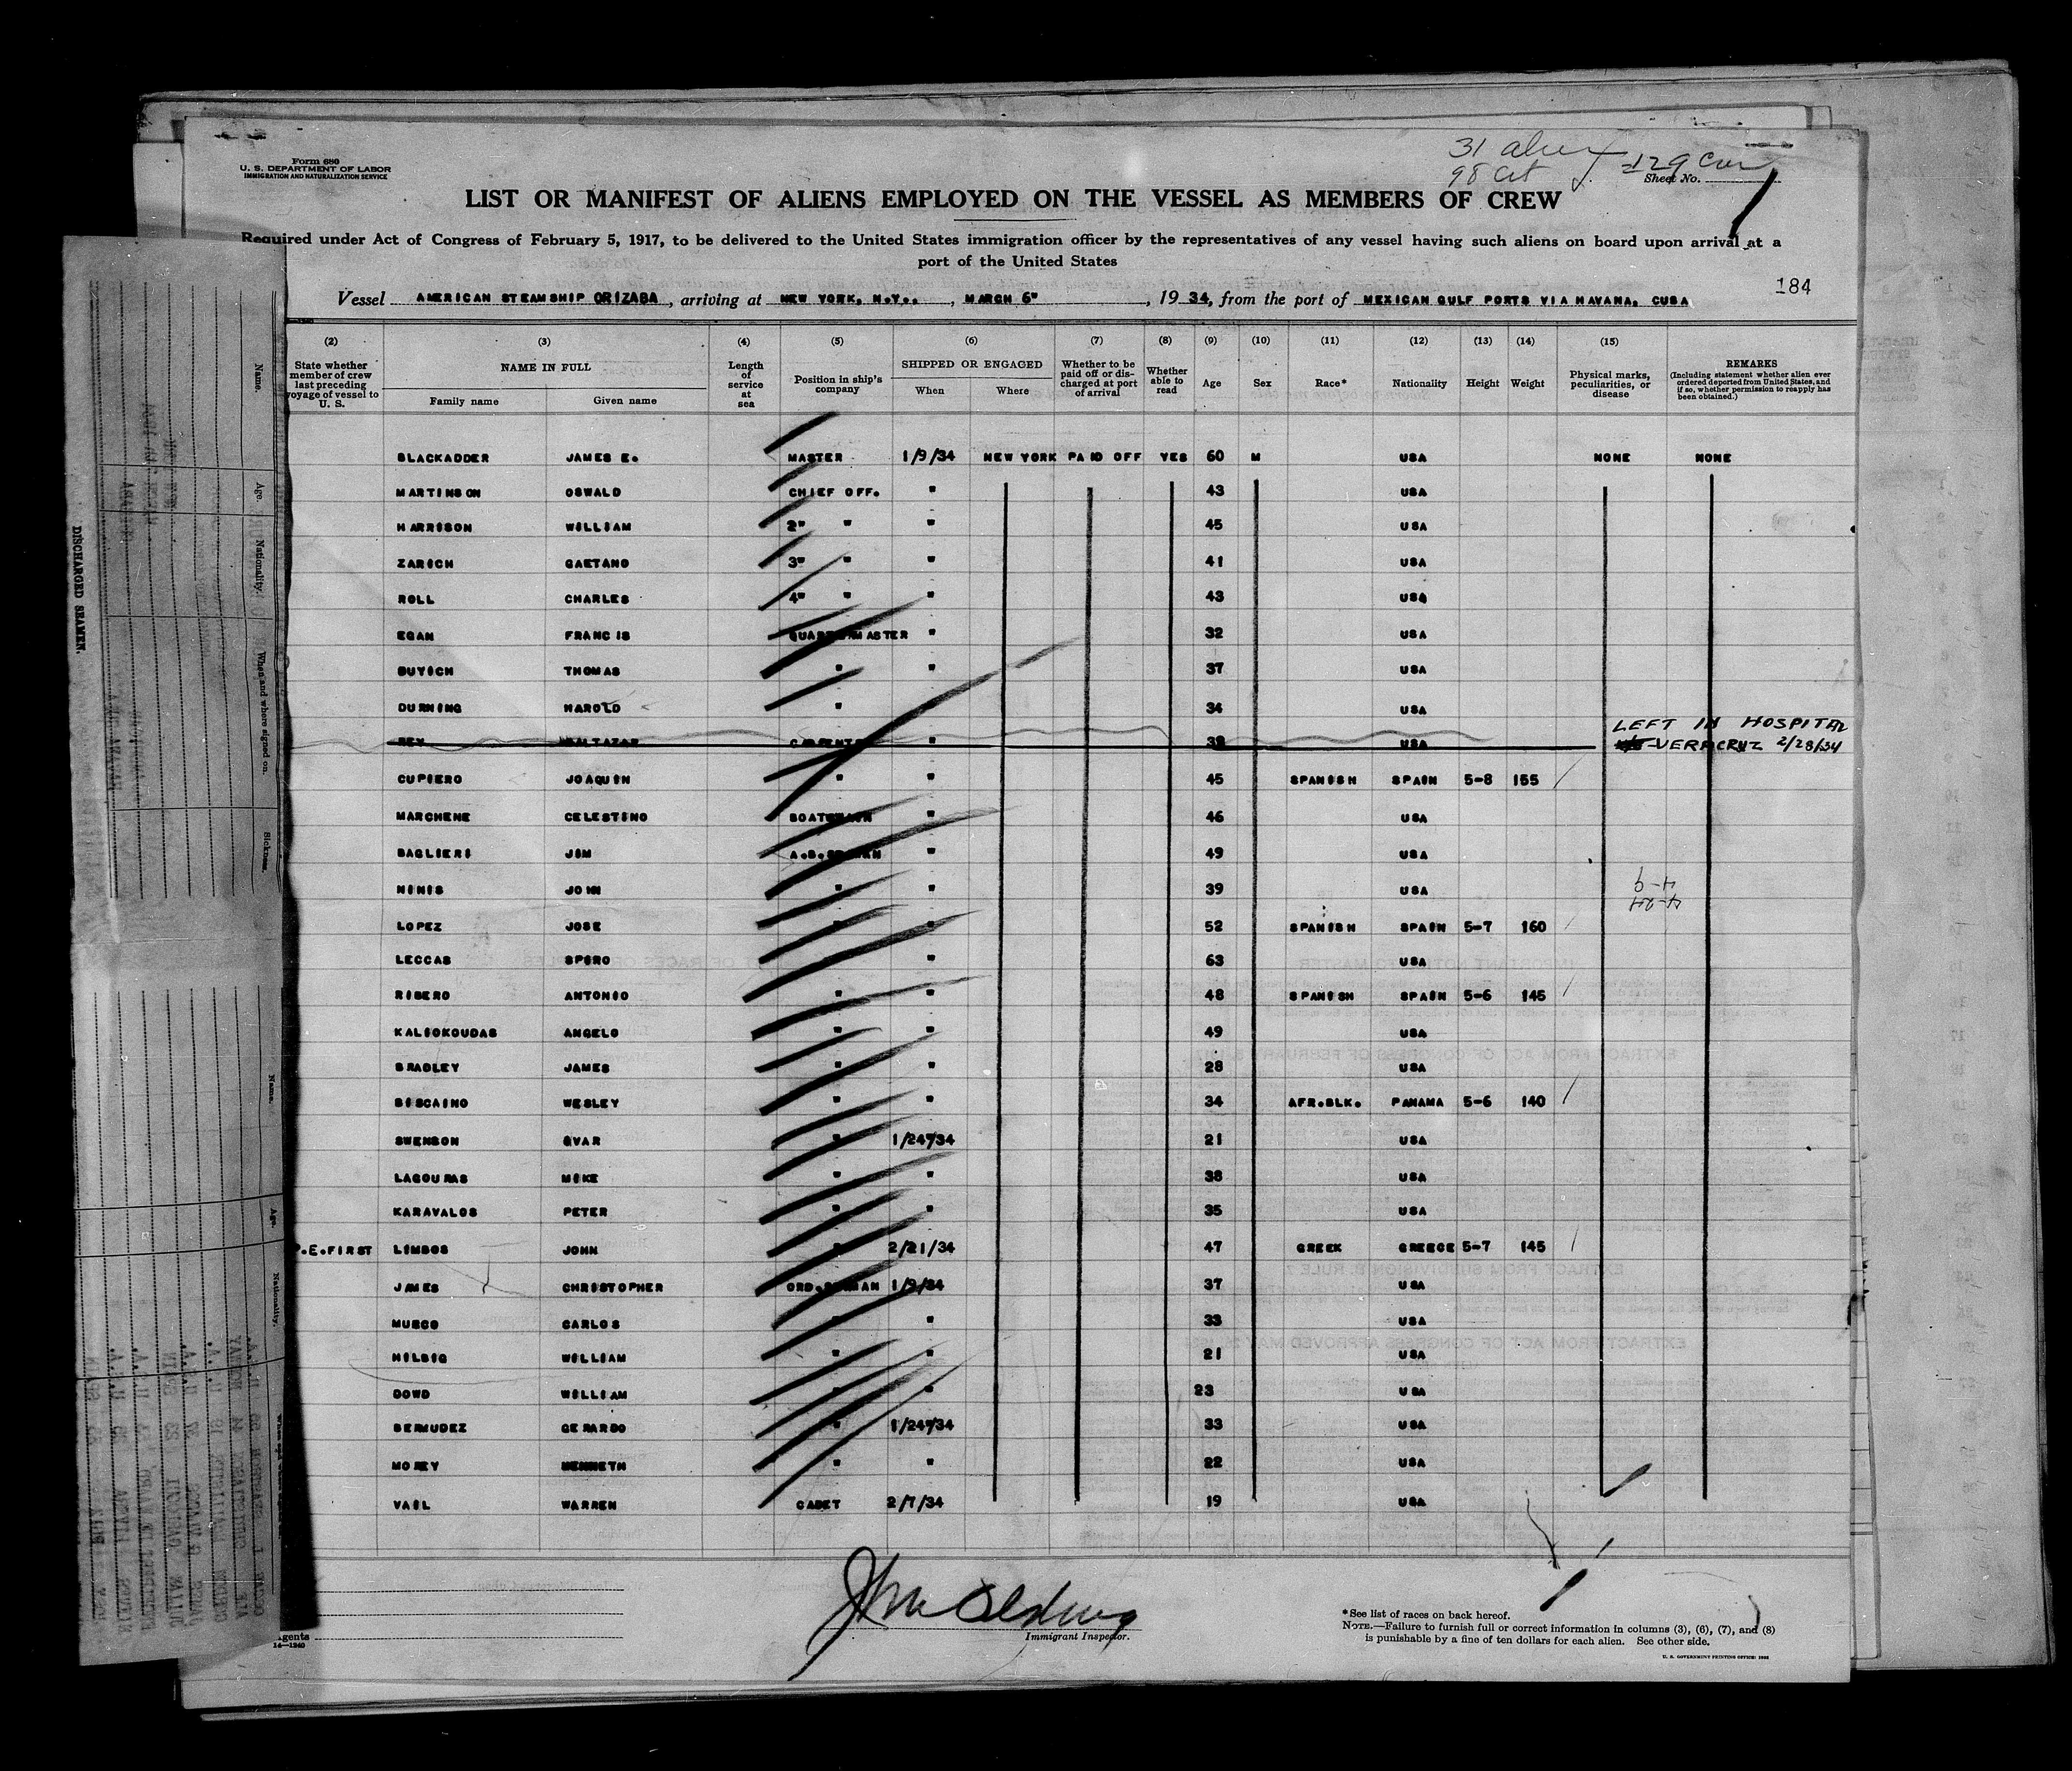 Form 680
U. S. DEPARTMENT OF LABOR
IMMIGRATION AND NATURALIZATION SERVICE
31
98 129
Sheet No.
LIST OR MANIFEST OF ALIENS EMPLOYED ON THE VESSEL AS MEMBERS OF CREW
Required under Act of Congress of February 5, 1917, to be delivered to the United States immigration officer by the representatives of any vessel having such aliens on board upon arrival at a
port of the United States
184
Vessel AMERICAN STEAMSHIP ORIZABA, arriving at NEW YORK, N.Y., MARCH 6", 1934, from the port of MEXICAN GULF PORTS VIA HAVANA, CUBA
(2) (3) (4) (5) (6) (7) (8) (9) (10) (11) (12) (13) (14) (15)
State whether member of crew last preceding voyage of vessel to U. S.
NAME IN FULL
Family name
Given name
Length of service at sea
Position in ship's company
SHIPPED OR ENGAGED
When
Where
Whether to be paid off or discharged at port of arrival
Whether able to read
Age
Sex
Race*
Nationality
Height
Weight
Physical marks, peculiarities, or disease
REMARKS
(Including statement whether alien ever ordered deported from United States, and if so, whether permission to reapply has been obtained.)
BLACKADDER JAMES E. MASTER 1/9/34 NEW YORK PAID OFF YES 60 M USA NONE NONE
MARTINSON OSWALD CHIEF OFF. " 43 USA
HARRISON WILLIAM 2" " " 45 USA
ZARICH GAETANO 3" " " 41 USA
ROLL CHARLES 4" " " 43 USA
EGAN FRANCIS QUARTERMASTER " 32 USA
BUYICH THOMAS " " 37 USA
DURNING HAROLD " " 34 USA
REY BALTAZAR CARPENTER 39 USA LEFT IN HOSPITAL
VERACRUZ 2/28/34
CUPIERO JOAQUIN " " 45 SPANISH SPAIN 5-8 155
MARCHENE CELESTINO BOATSWAIN " 46 USA
BAGLIERI JIM A.B.SEAMAN " 49 USA
NINIS JOHN " " 39 USA
LOPEZ JOSE " " 52 SPANISH SPAIN 5-7 160
LECCAS SPIRO " 63 USA
RIBERO ANTONIO " " 48 SPANISH SPAIN 5-6 145
KALIOKOUDAS ANGELO " " 49 USA
BRADLEY JAMES " " 28 USA
BISCAINO WESLEY " " 34 AFR.BLK. PANAMA 5-6 140
SWENSON IVAR " 1/24/34 21 USA
LAGOURAS MIKE " " 38 USA
KARAVALOS PETER " " 35 USA
P.E.FIRST LIMBOS JOHN " 2/21/34 47 GREEK GREECE 5-7 145
JAMES CHRISTOPHER ORD.SEAMAN 1/9/34 37 USA
MUECO CARLOS " " 33 USA
HILBIG WILLIAM " " 21 USA
DOWD WILLIAM " " 23 USA
BERMUDEZ GERARDO " 1/24/34 33 USA
MOREY KENNETH " " 22 USA
VAIL WARREN CADET 2/7/34 19 USA
Immigrant Inspector.
Agents
14—1240
*See list of races on back hereof.
NOTE.—Failure to furnish full or correct information in columns (3), (6), (7), and (8)
is punishable by a fine of ten dollars for each alien. See other side.
U. S. GOVERNMENT PRINTING OFFICE: 1933
DISCHARGED SEAMEN.
Name.
Age.
Nationality.
When and where signed on.
Sickness.
Name.
Age.
Nationality.